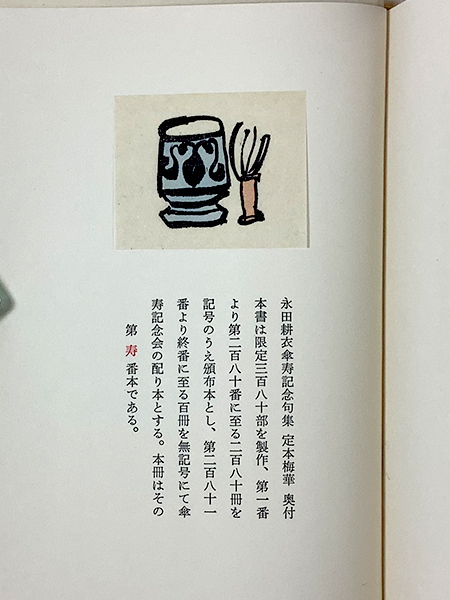 永田耕衣傘寿記念句集 定本梅華 奥付
本書は限定三百八十部を製作、第一番
より第二百八十番に至る二百八十冊を
記号のうえ頒布本とし、第二百八十一
番より終番に至る百冊を無記号にて傘
寿記念会の配り本とする。本冊はその
第 寿 番本である。